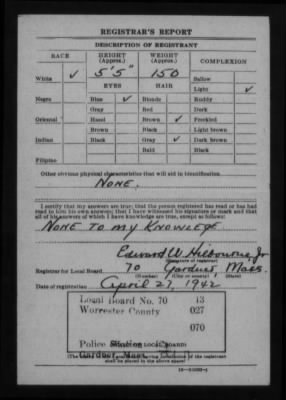 REGISTRAR'S REPORT
DESCRIPTION OF REGISTRANT
RACE HEIGHT (Approx.) WEIGHT (Approx.) COMPLEXION
White ✓ 5'5" 150 Sallow
EYES HAIR Light ✓
Negro Blue ✓ Blonde Ruddy
Gray Red Dark
Oriental Hazel Brown ✓ Freckled
Brown Black Light brown
Indian Black Gray ✓ Dark brown
Bald Black
Filipino
Other obvious physical characteristics that will aid in identification
NONE.
I certify that my answers are true; that the person registered has read or has had
read to him his own answers; that I have witnessed his signature or mark and that
all of his answers of which I have knowledge are true, except as follows:
NONE TO MY KNOWLEDGE
Edward W Jr
(Signature of registrar)
Registrar for Local Board 70 Gardner, Mass.
(Number) (City or county) (State)
Date of registration April 27, 1942
Local Board No. 70 13
Worcester County 027
070
Police Station
LOCAL BOARD)
Gardner, Mass.
of the registrant
shall be placed in the above space)